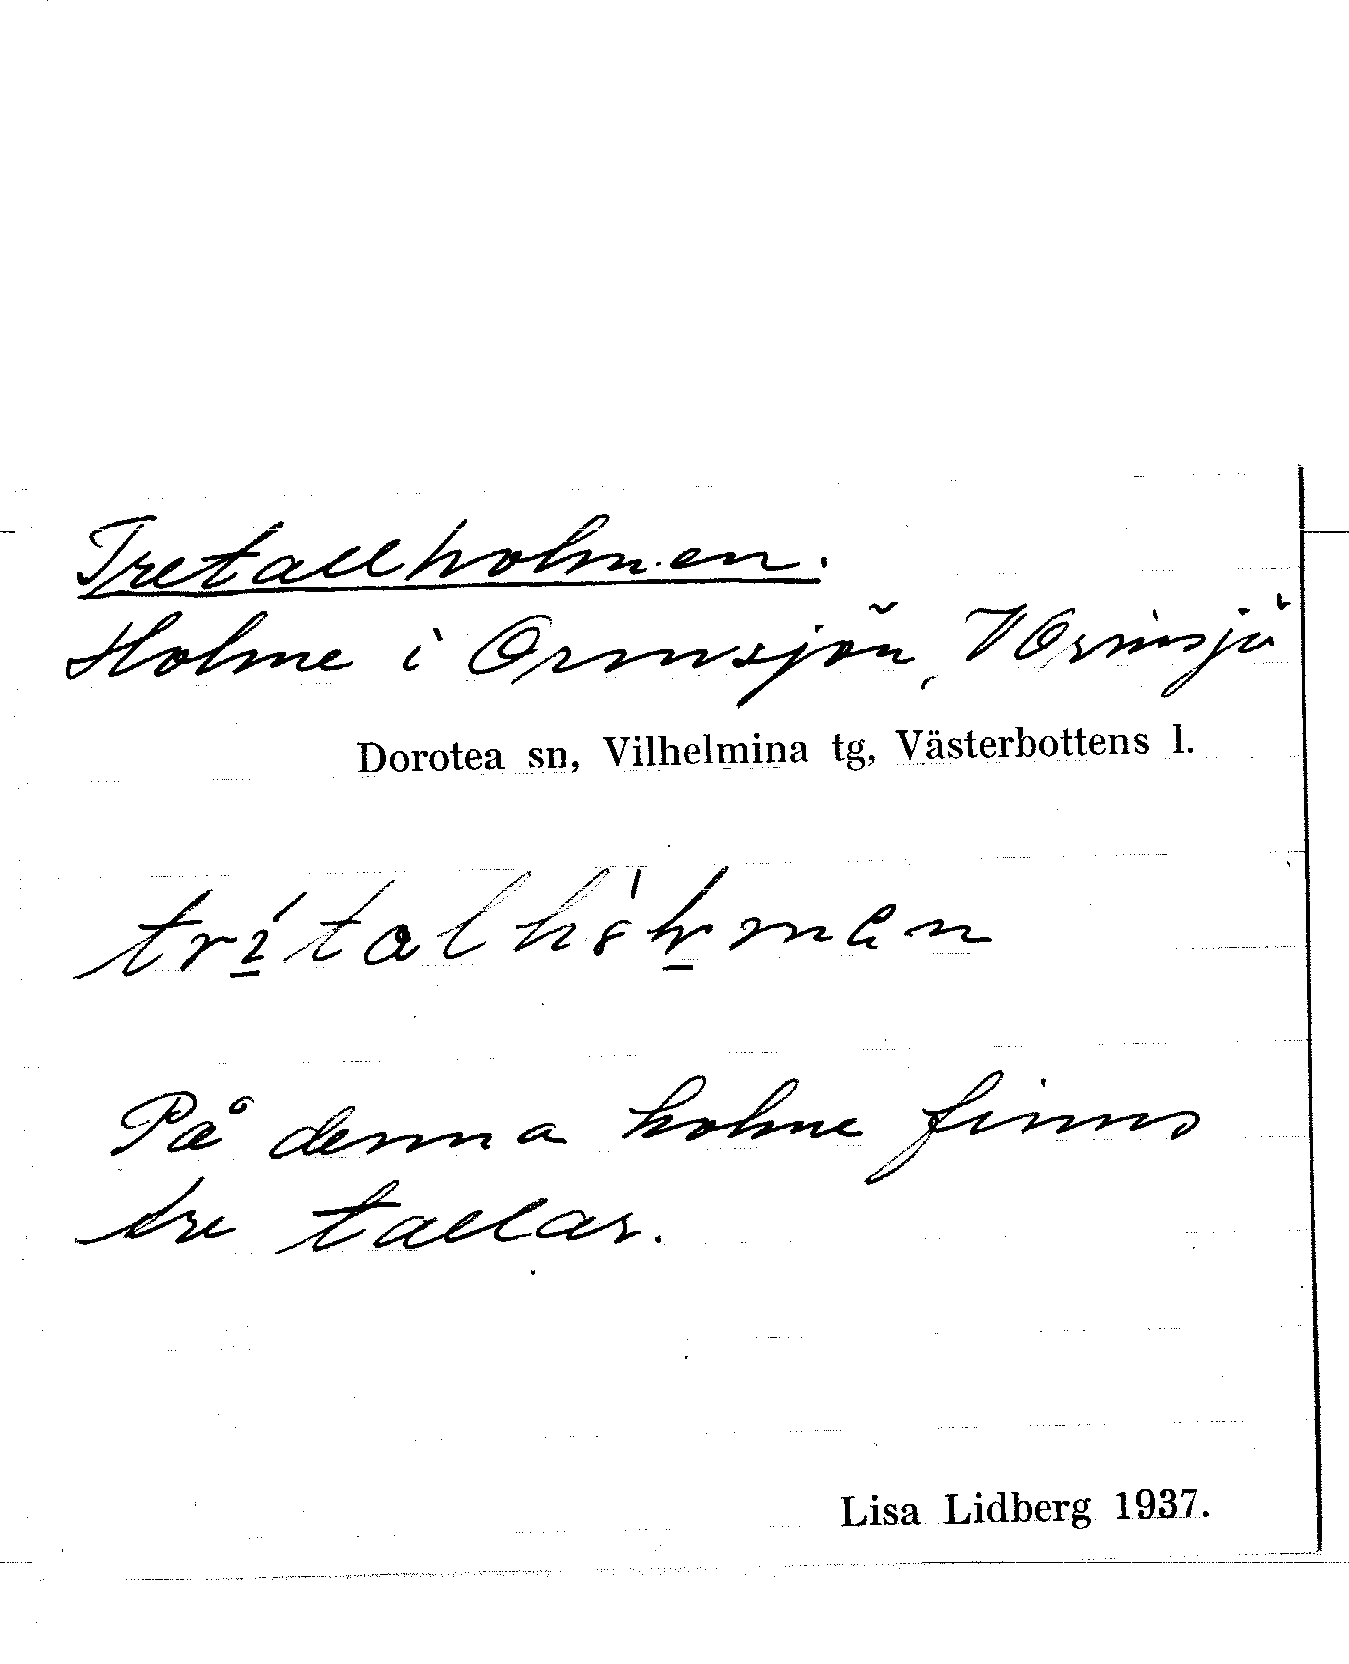 Tretallholmen.
Holme i Ormsjön, V Ormsjö
Dorotea sn, Vilhelmina tg, Västerbottens l.
På denna holme finns
tre tallar.
Lisa Lidberg 1937.